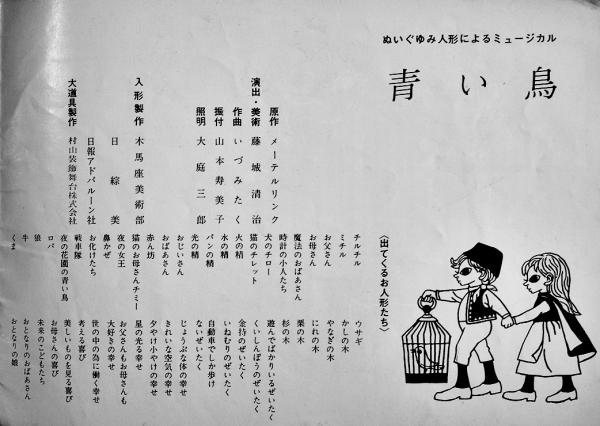 ぬいぐゆみ人形によるミュージカル
青い鳥
原作 メーテルリンク
演出・美術 藤城清治
作曲 いづみたく
振付 山本寿美子
照明 大庭三郎
入形製作 木馬座美術部
日綜美
日報アドバルーン社
大道具製作 村山装飾舞台株式会社
〈出てくるお人形たち〉
チルチル
ミチル
お父さん
お母さん
魔法のおばあさん
時計の小人たち
犬のチロー
猫のチレット
火の精
水の精
パンの精
光の精
おじいさん
おばあさん
赤ん坊
猫のお母さんチミー
夜の女王
鼻かぜ
お化けたち
戦車隊
夜の花園の青い鳥
ロバ
狼
牛
くま
ウサギ
かしの木
やなぎの木
にれの木
栗の木
杉の木
遊んでばかりいるぜいたく
くいしんぼうのぜいたく
金持のぜいたく
いねむりのぜいたく
自動車でしか歩け
ないぜいたく
じょうぶな体の幸せ
きれいな空気の幸せ
夕やけ小やけの幸せ
星の光る幸せ
お父さんもお母さんも
大好きの幸せ
世の中の為に働く幸せ
考える喜び
美しいものを見る喜び
お母さんの喜び
未来のこどもたち
おとなりのおばあさん
おとなりの娘